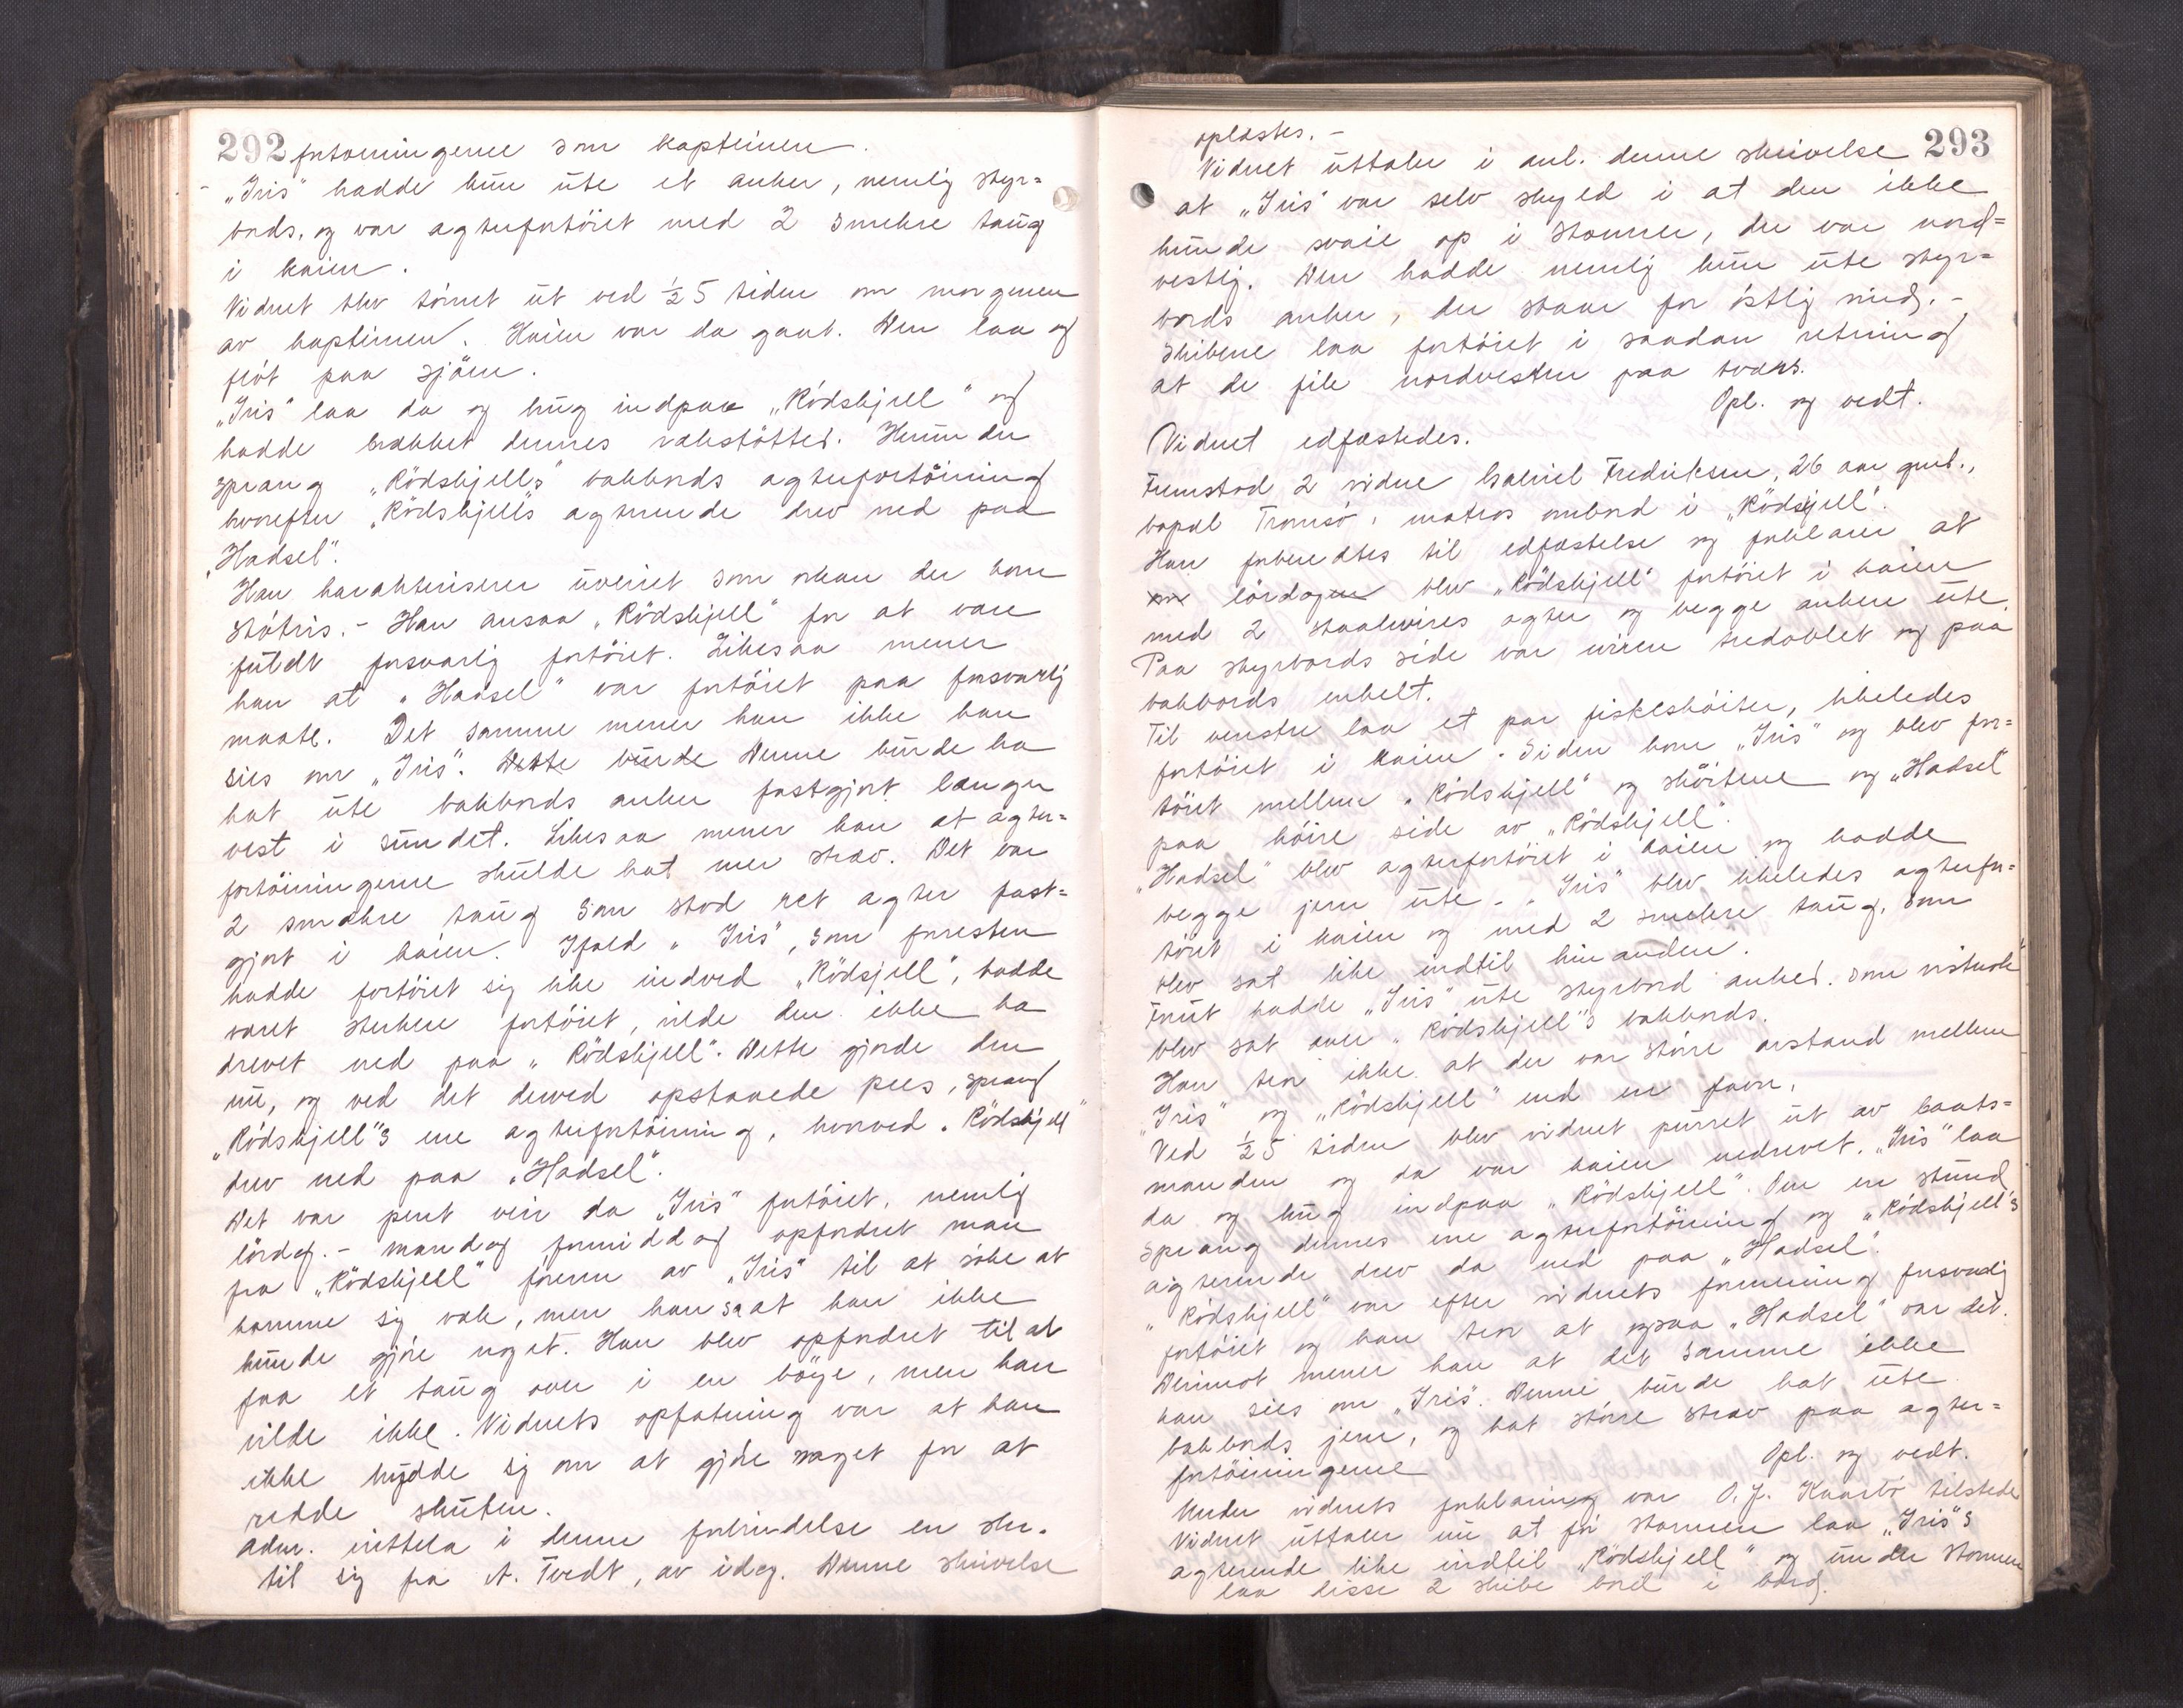 292 fortøiningerne som kapteinen.
- „Iris" hadde kun ute et anker, nemlig styr=
bords, og var agterfortøiet med 2 smekre taug
i kaien.
Vidnet blev törnet ut ved ½5 tiden om morgenen
av kapteinen. Kaien var da gaat. Den laa og
flöt paa sjöen.
„Iris" laa da og hug indpaa „Rödskjell" og
hadde brækket dennes rækstötter. Herunder
sprang „Rödskjells" bakbords agterfortöining
hvorefter „Rödskjells agterende drev ned paa
„Hadsel".
Han karakteriserer uveiret som orkan der kom
støtvis. - Han ansaa „Rödskjell" for at være
fuldt forsvarlig fortöiet. Likesaa mener
han at „Hadsel" var fortöiet paa forsvarlig
maate. Det samme mener han ikke kan
sies om „Iris". Dette burde Denne burde ha
hat ute bakbords anker fastgjort længer
vest i sundet. Likesaa mener han at agter=
fortöiningerne skulde hat mer stræv. Det var
2 smækre taug som stod ret agter fast=
gjort i kaien. Ifald „Iris", som foresten
hadde fortöiet sig like indved „Rödsjell", hadde
været sterkere fortöiet, vilde den ikke ha
drevet ned paa „Rödskjell". Dette gjorde den
nu, og ved det derved opstaaede pres, sprang
„Rödskjell"s ene agterfortöining, hvorved „Rödskjell"
drev ned paa „Hadsel".
Det var pent veir da „Iris" fortöiet, nemlig
lördag. - Mandag formiddag opfordret man
fra „Rödskjell" föreren av „Iris" til at söke at
komme sig væk, men han sa at han ikke
kunde gjöre noget. Han blev opfordret til at
faa et taug over i en böye, men han
vilde ikke. Vidnets opfatning var at han
ikke brydde sig om at gjöre noget for at
redde skuten.
Adm. intok i denne forbindelse en skr.
til sig fra A. Tvedt, av idag. Denne skrivelse
293
oplæstes. -
Vidnet uttaler i anl. denne skrivelse
at „Iris" var selv skyld i at den ikke
kunde svaie op i stormen, der var nord=
vestlig. Den hadde nemlig kun ute styr=
bords anker, der staar for östlig vind. -
Skibene laa fortöiet i saadan retning
at de fik nordvesten paa tværs.
Opl. og vedt.
Vidnet edfæstedes.
Fremstod 2 vidne Gabriel Fredriksen, 26 aar gml.,
bopæl Tromsö, matros ombord i „Rödsjell".
Han foreredtes til edfæstelse og forklarer at
om lördagen blev „Rödskjell" fortöiet i kaien
med 2 staalwires agter og begge ankere ute.
Paa styrbords side var wiren tredoblet og paa
bakbords enkelt.
Til venstre laa et par fiskeskøiter, likeledes
fortöiet i kaien. Siden kom „Iris" og blev for=
töiet mellem „Rödskjell" og sköitene og „Hadsel"
paa höire side av „Rödskjell".
„Hadsel" blev agterfortöiet i kaien og hadde
begge jern ute. - „Iris" blev likeledes agterfor=
töiet i kaien og med 2 smekre taug, som
blev sat like indtil hinanden.
Forut hadde „Iris" ute styrbord anker, som vistnok
blev sat over „Rödskjell"s bakbords.
Han tror ikke at der var större avstand mellem
„Iris" og „Rödskjell" end en favn.
Ved ½5 tiden blev vidnet purret ut av baats=
manden og da var kaien nedrevet. „Iris" laa
da og hug indpaa „Rödskjell". Om en stund
sprang dennes ene agterfortöining og „Rödskjell"s
agterende drev da ned paa „Hadsel".
„Rödskjell" var efter vidnets formening forsvarlig
fortöiet og han tror at ogsaa „Hadsel" var det.
Derimot mener han at det samme ikke
kan sies om „Iris". Denne burde hat ute
bakbords jern, og hat större stræv paa agter=
fortöiningerne
Opl. og vedt.
Under vidnets forklaring var O. J. Kaarbö tilstede
Vidnet uttaler nu at för stormen laa „Iris"s
agterende like indtil „Rödskjell" og under stormen
laa disse 2 skibe bord i bord.